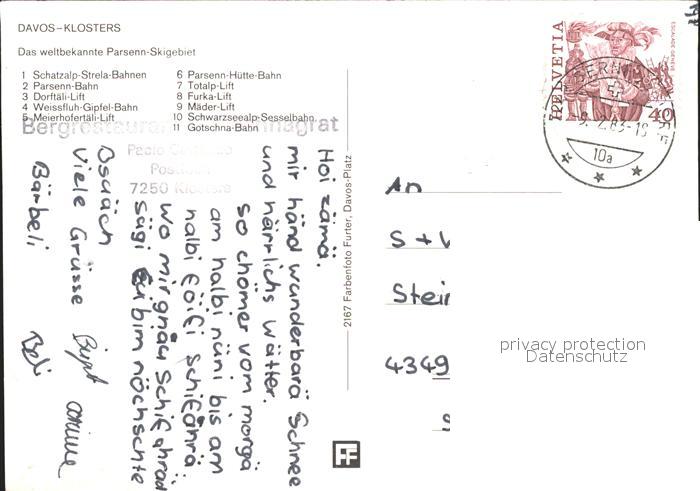 DAVOS–KLOSTERS
Das weltbekannte Parsenn-Skigebiet
1 Schatzalp-Strela-Bahnen
2 Parsenn-Bahn
3 Dorftäli-Lift
4 Weissfluh-Gipfel-Bahn
5 Meierhofertäli-Lift
6 Parsenn-Hütte-Bahn
7 Totalp-Lift
8 Furka-Lift
9 Mäder-Lift
10 Schwarzseealp-Sesselbahn
11 Gotschna-Bahn
7250 Klosters
Hoi zämä.
mir händ wunderbarä Schnee
und härrlichs Wätter.
so chömer vom morgä
am halbi nüni bis am
halbiföifi schifahrä
wo mir gnau Schifahräd
sägi eu bim nöchschte
Bsuäch
Viele Grüsse Birgit
Bärbeli Beli corinne
2167 Farbenfoto Furter, Davos-Platz
FF
HELVETIA
40
ESCALADE GENÈVE
BERN
10a
An
S + V
Stei
4349
privacy protection
Datenschutz